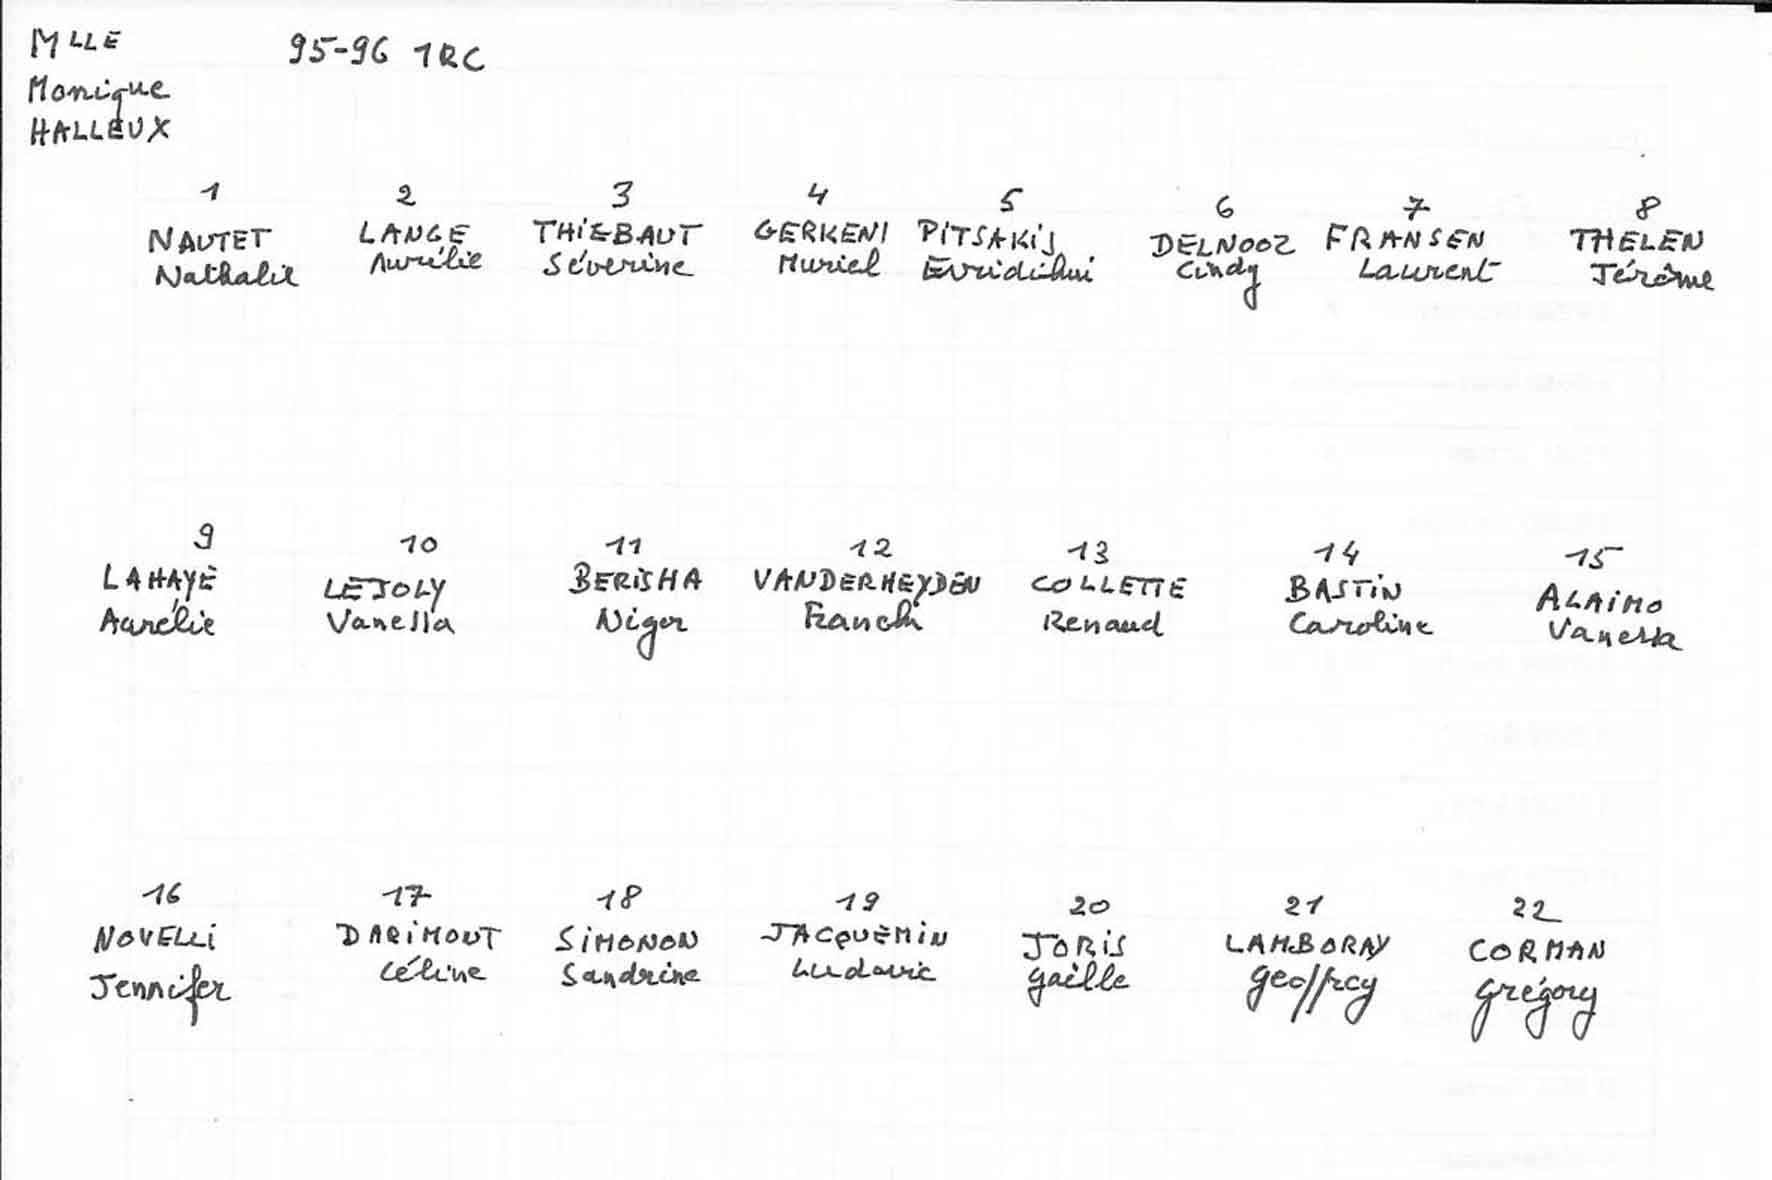 MLLE 95-96 1RC
Monique
HALLEUX
1 2 3 4 5 6 7 8
NAUTET LANGE THIEBAUT GERKENI PITSAKIS DELNOOZ FRANSEN THELEN
Nathalie Aurélie Séverine Muriel Cindy Laurent Jérôme
9 10 11 12 13 14 15
LAHAYE LEJOLY BERISHA VANDERHEYDEN COLLETTE BASTIN ALAIMO
Aurélie Vanessa Nigor Franck Renaud Caroline Vanessa
16 17 18 19 20 21 22
NOVELLI DARIMONT SIMONON JACQUEMIN JORIS LAMBORAY CORMAN
Jennifer Céline Sandrine Ludovic Gaëlle Geoffrey Grégory